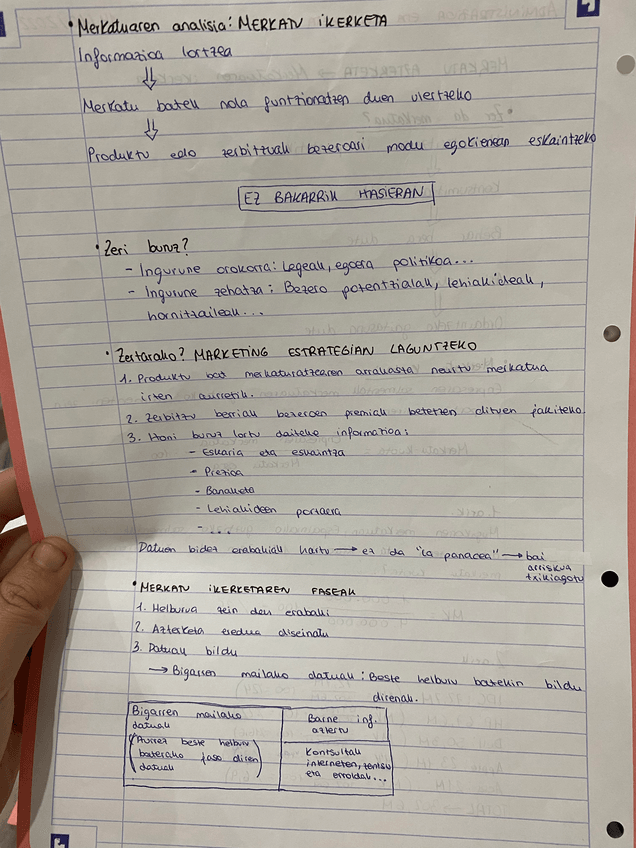 • Merkatuaren analisia: MERKATU IKERKETA
Informazioa lortzea
⇓
Merkatu batek nola funtzionatzen duen ulertzeko
⇓
Produktu edo zerbitzuak bezeroari modu egokienean eskaintzeko
EZ BAKARRIK HASIERAN
• Zeri buruz?
- Ingurune orokorra: Legeak, egoera politikoa...
- Ingurune zehatza: Bezero potentzialak, lehiakideak,
hornitzaileak...
• Zertarako? MARKETING ESTRATEGIAN LAGUNTZEKO
1. Produktu bat merkaturatzearen arrakasta neurtu merkatua
irten aurretik.
2. Zerbitzu berriak bezeroen premiak betetzen dituen jakiteko.
3. Honi buruz lortu daiteke informazioa:
- Eskaria eta eskaintza
- Prezioa
- Banaketa
- Lehiakideen portaera
- ...
Datuen bidez erabakiak hartu → ez da "la panacea" → bai
arriskua
txikiagotu
• MERKATU IKERKETAREN FASEAK
1. Helburua zein den erabaki
2. Azterketa eredua diseinatu
3. Datuak bildu
→ Bigarren mailako datuak: Beste helburu batekin bildu
direnak.
Bigarren mailako
datuak
(Aurrez beste helburu
baterako jaso diren
datuak)
Barne inf.
aztertu
Kontsultak
interneten,
eta erroldak...